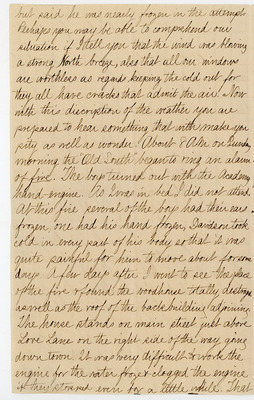 but said he was nearly frozen in the attempt.
Perhaps you may be able to comprehend our
situation if I tell you that the wind was blowing
a strong North breeze, also that all our windows
are worthless as regards keeping the cold out for
they all have cracks that admit the air. Now
with this discription of the weather you are
prepared to hear something that will make you
pity as well as wonder. About 8 A.M. on Sunday
morning the "Old South" began to ring an alarm
of fire. The boys turned out with the Academy
hand-engine. As I was in bed I did not attend.
At this fire several of the boys had their ears
frozen, one had his hand frozen, took
cold in every part of his body so that it was
quite painful for him to move about for some
days. A few days after I went to see the place
of the fire & found the woodhouse totally destroyed
as well as the roof of the back building adjoining.
The house stands on main street just above
Love Lane on the right side of the way going
down town. It was very difficult to work the
engine for the water froze & clogged the engine
if they stopped even for a little while. That